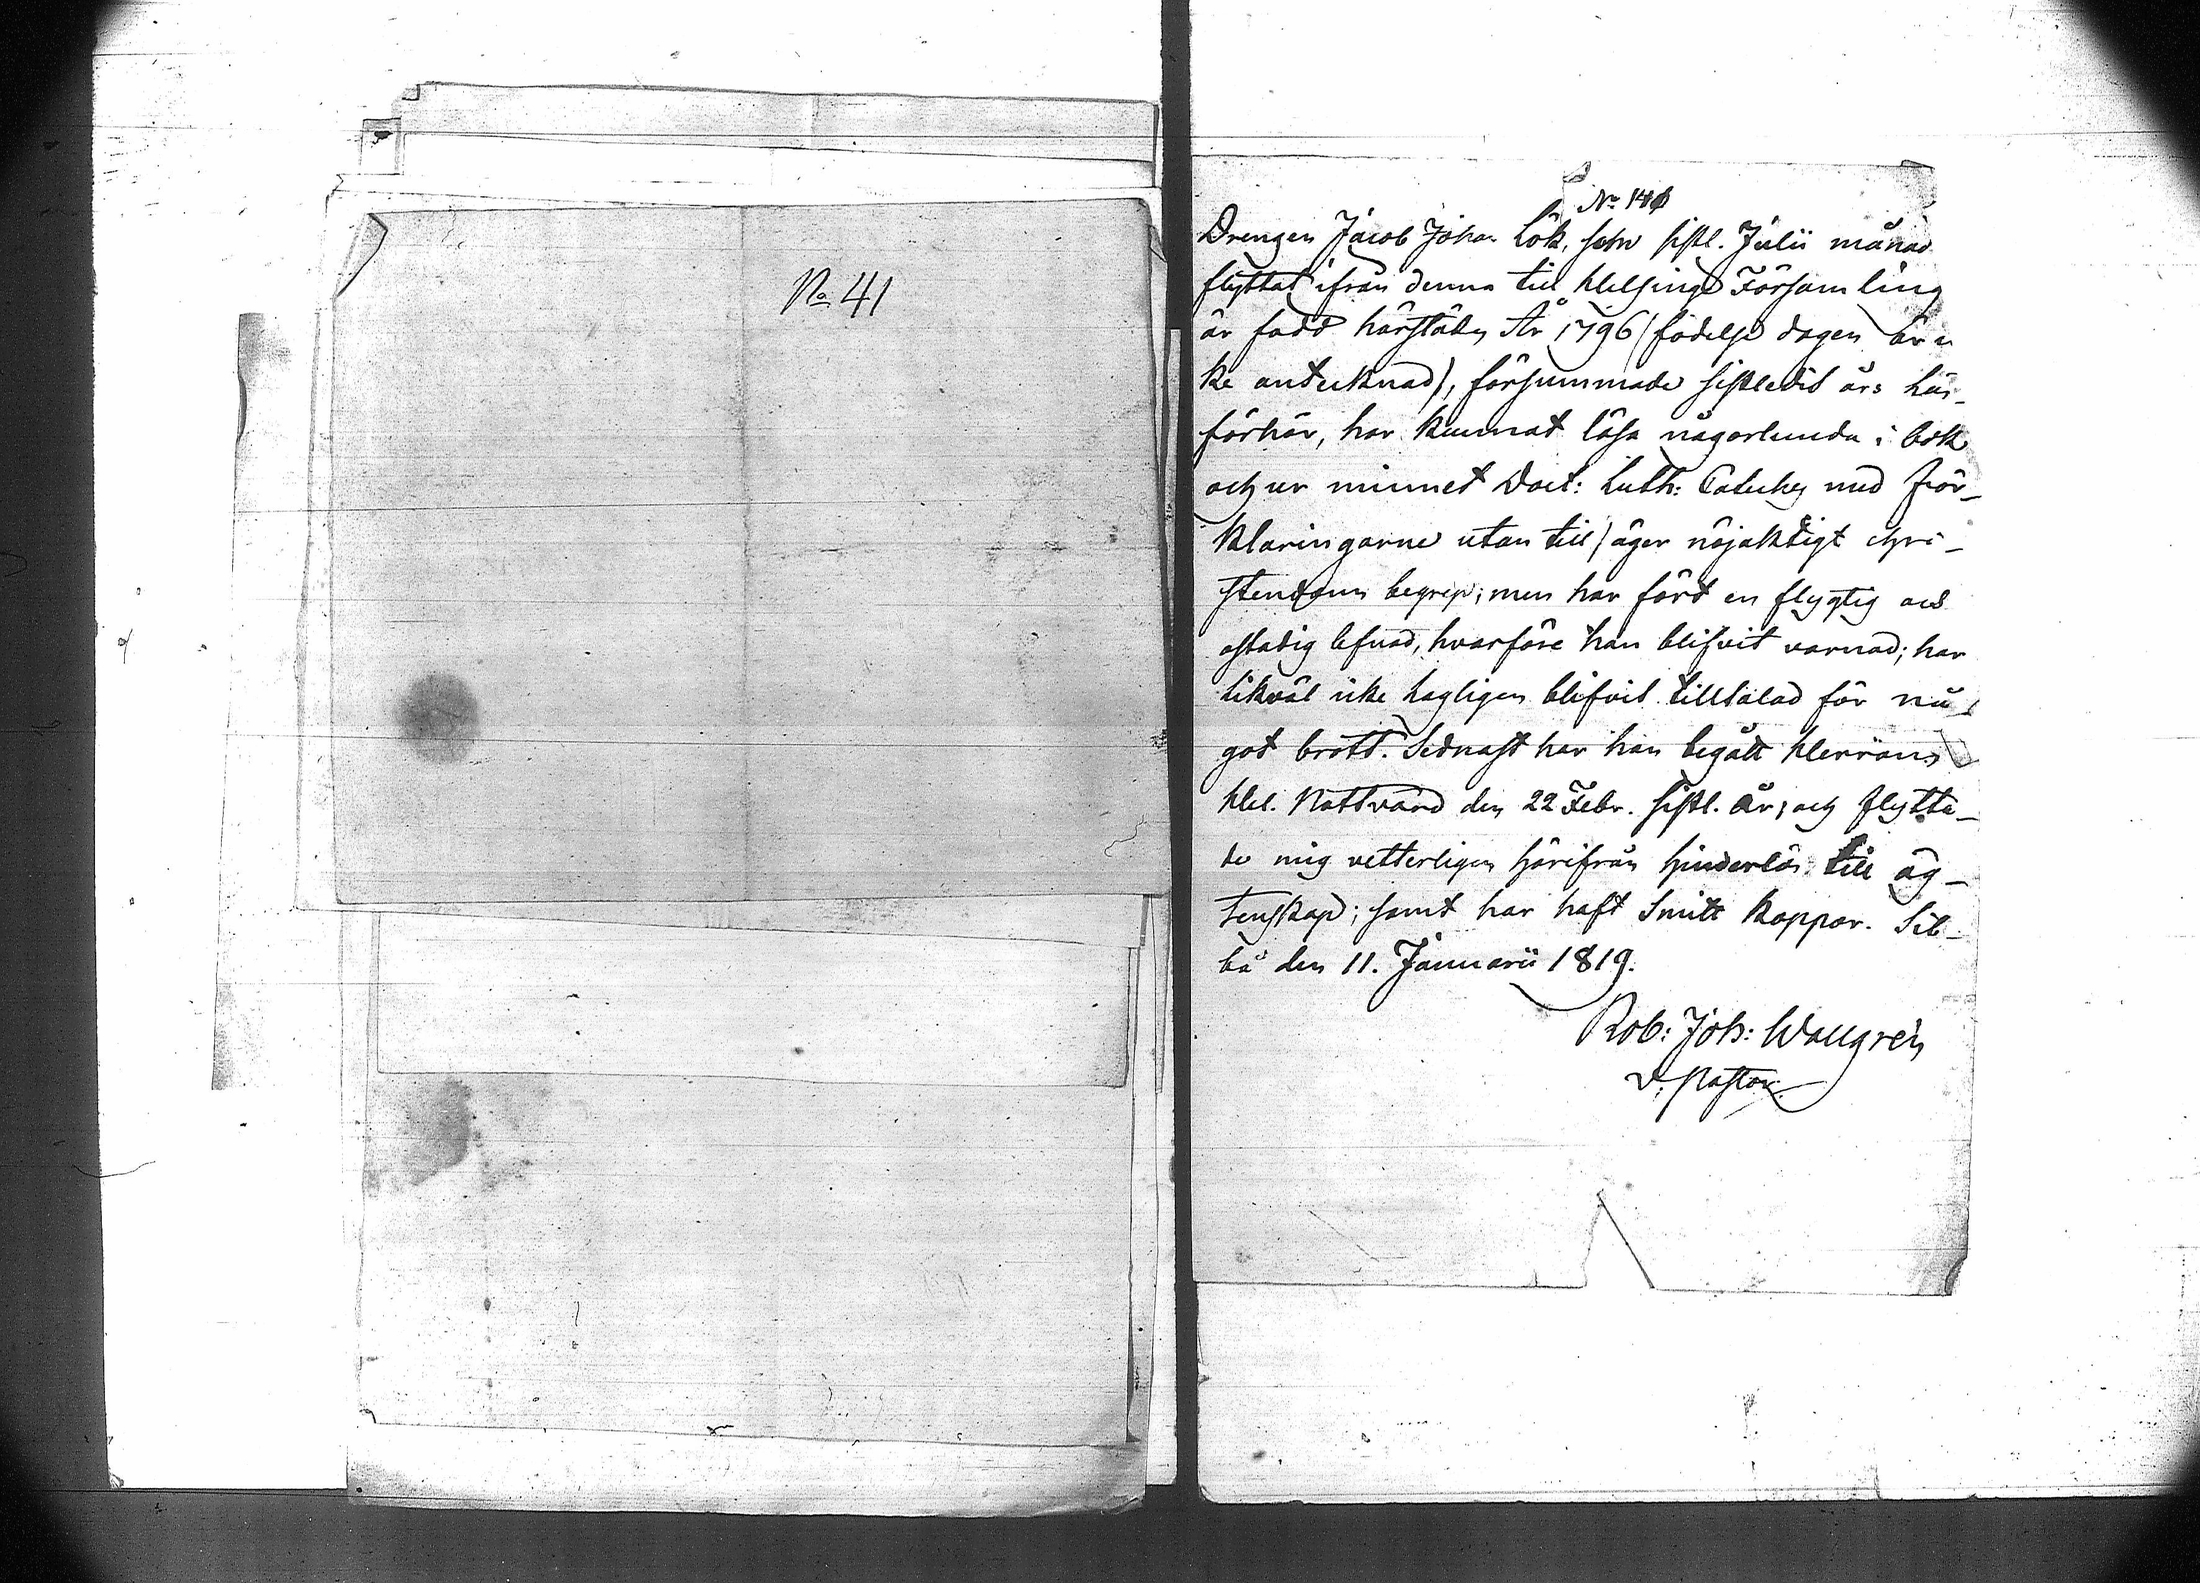 No 41
No 140
Drengen Jacob Johan Lök, som sistl. Julii månad
flyttat ifrån denna till Helsinge Församling
är född härstädes År 1796 (födelse dagen är ic
ke antecknad), försummade sistledit års Läs-
förhör, har kunnat läsa någorlunda i bok
och ur minnet Doct: Luth: Cateches med För-
klaringarne utan till, äger nöjaktigt chri-
stendoms begrep; men har fört en flygtig och
ostadig lefnad, hvarföre han blifvit varnad; har
likväl icke lagligen blifvit tilltalad för nå-
got brott. Sednast har han begått Herrans
Hel. Nattvard den 22 Febr. sistl. År; och flytta-
de mig vetterligen härifrån hinderlös till äg-
tenskap; samt har haft Smitt koppor. Sib-
bå den 11. Januarii 1819.
Rob: Joh: Wallgrén
v. Pastor